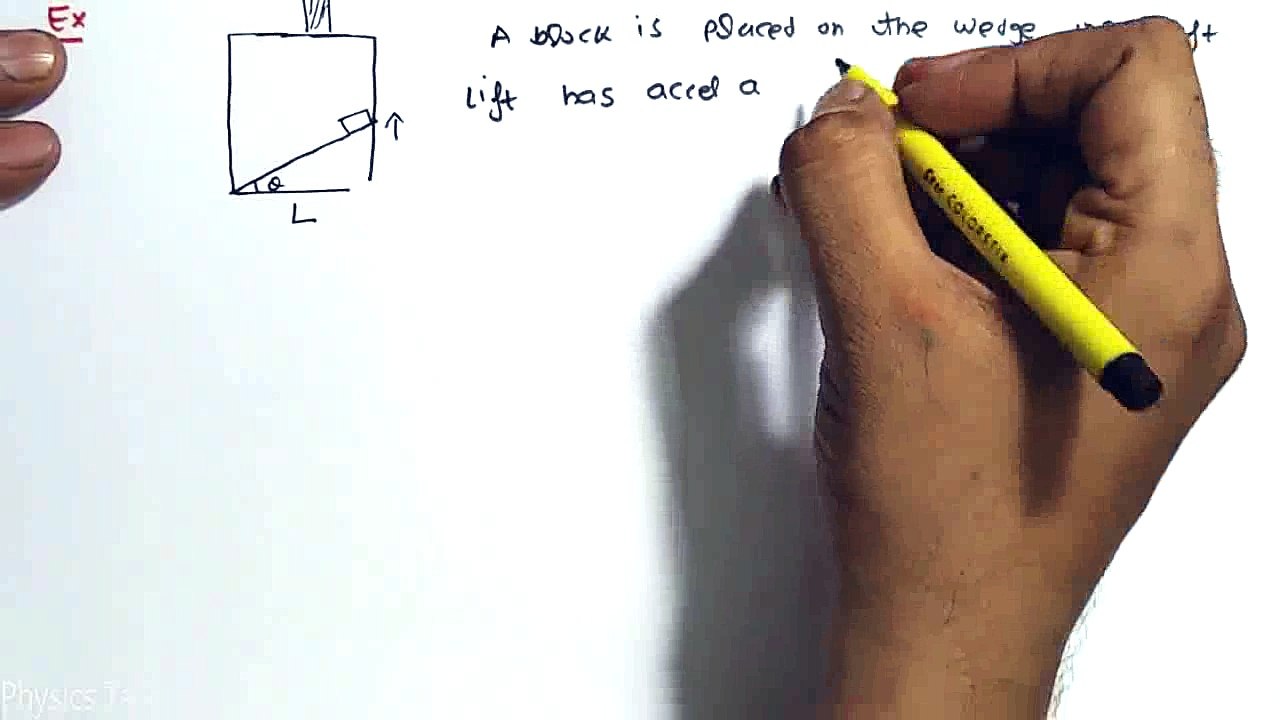 Ex
A block is placed on the wedge
lift has accel a
θ
L
CAMEL COLORSTIX
Physics